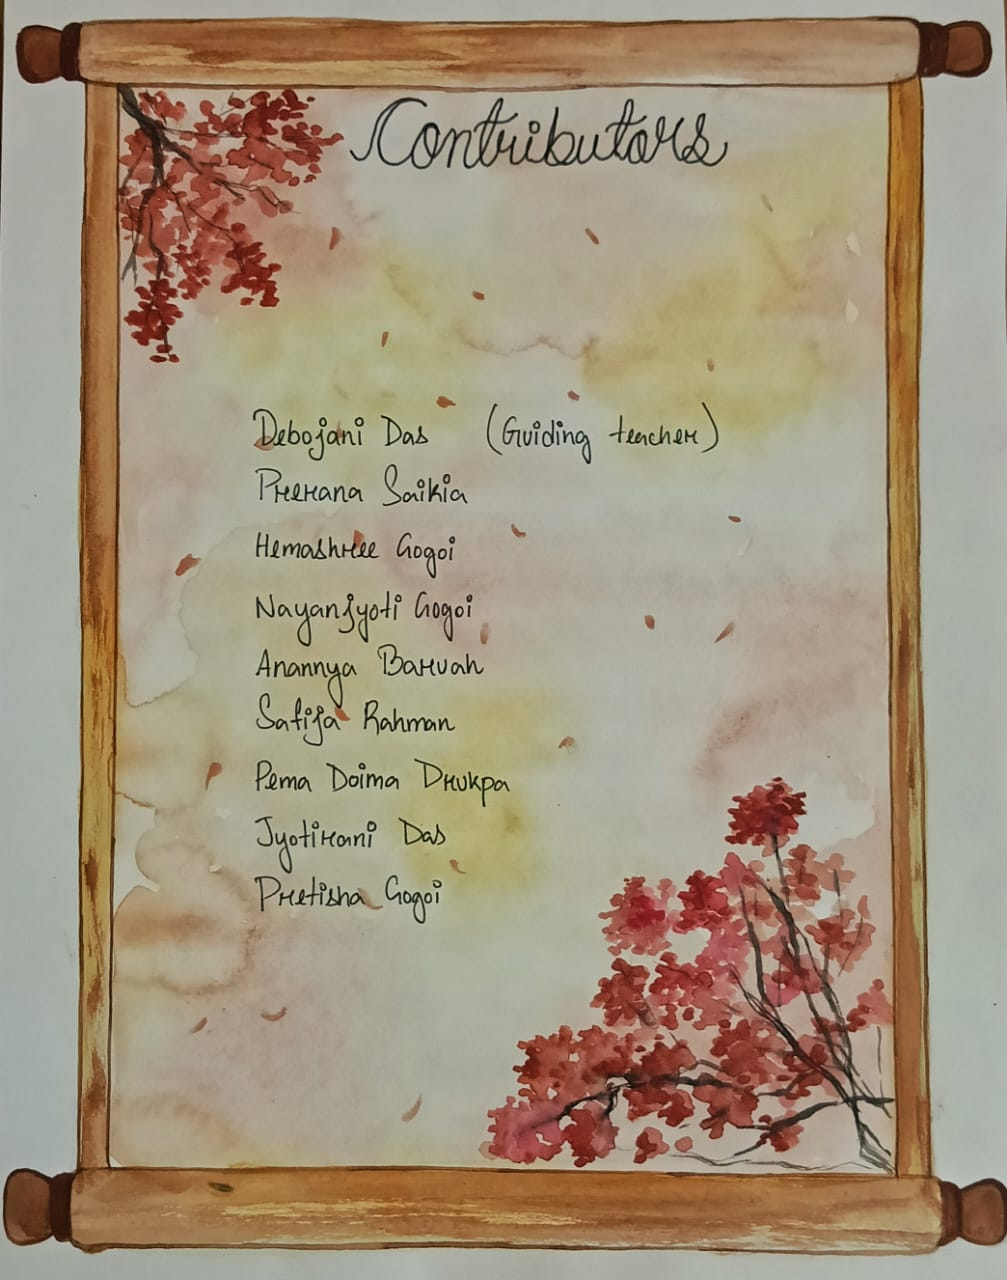 Contributors
Debojani Das (Guiding teacher)
Prerana Saikia
Hemashree Gogoi
Nayanjyoti Gogoi
Anannya Baruah
Safija Rahman
Pema Doima Drukpa
Jyotirani Das
Pretisha Gogoi